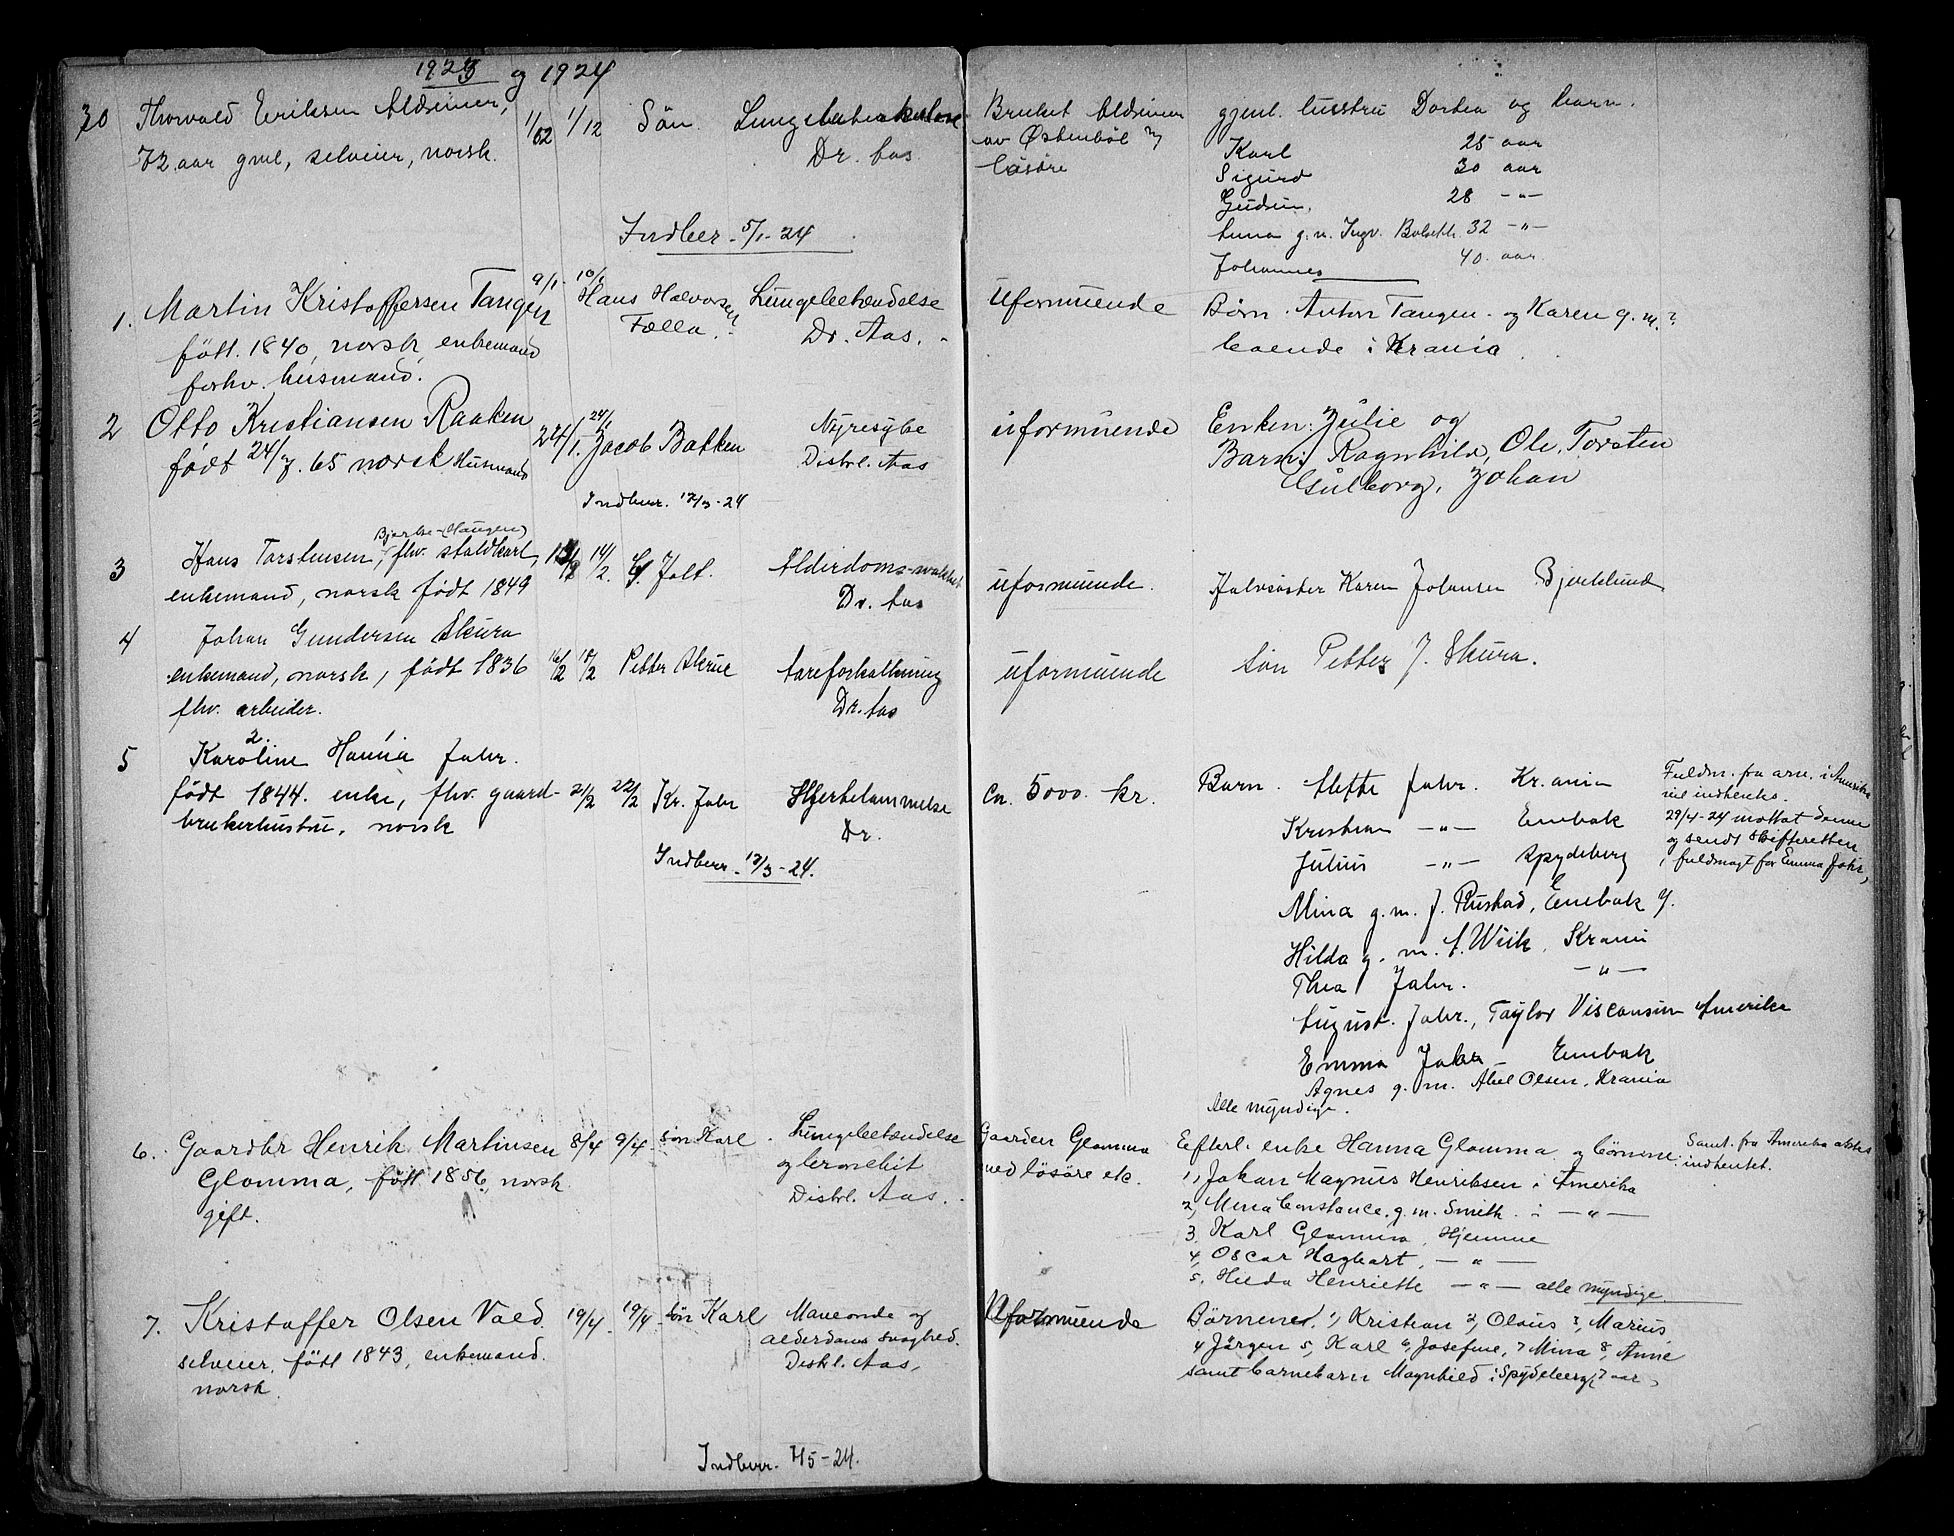 1923 og 1924
30 Thorvald Eriksen 1/12 1/12 Sön. Lungetuberkulose Bruket av Østenböl og lösöre gjenl. hustru Dortea og barn.
72 aar gml, selveier, norsk. Dr. Aas
Karl 25 aar
Sigurd 30 aar
Gudrun, 28 -"-
Anna g.m. Ingv. 32 -"-
Johannes 40 aar
Indber. 5/1-24
1. Martin Kristoffersen Tangen 9/1 10/1 Hans Halvorsen Lungebetændelse Uformuende Børn. Anton Tangen. og Karen g.m.?
född. 1840, norsk, enkemand Fælla. Dr. Aas. boende i Krania.
forhv. husmand.
2 Otto Kristiansen Raaken 24/1. 24/1 Jacob Bakken Nyresyke uformuende Enken: Julie og
født 24/7. 65 norsk Husmand Distrl. Aas Barn: Ragnhild, Ole, Torsten
Gulborg, Johan
Indberr. 17/3-24
Bjerke-(Haugen)
3 Hans Torstensen, fhv. staldkarl, 14/2. Jolt. Alderdoms-svakhet uformuende. Halvsøster Karen Johansen Bjerklund
enkemand, norsk født 1849 Dr. Aas
4 Johan Gundersen Skura
enkemand, norsk, født 1836 16/2 18/2 Petter Skrue Aareforkalkning uformuende Søn Petter J. Skura.
fhv. arbeider. Dr. Aas
5 Karoline Hanna Jahr.
2. 1
født 1844. enke, fhv. gaard- 21/2 22/2 Kr. Jahr Hjertelammelse ca. 5000. kr. Barn. Jahr. Kr.ania
brukerhustru, norsk Dr.
Kristian -"- Enebak
Julius -"- Spydeberg
Fuldm. fra arv. i Amerika
vil indhentes.
29/4-24 mottat denne
og sendt skifteretten
i fuldmagt for Emma Jahr,
Indberr. 17/3-24.
Mina g.m. J. Rustad, Enebak
Hilda g. m. A. Wiik, Krania
Thea Jahr. -"-
August. Jahr., Taylor Viscansin Amerika
Emma Jahr - Enebak
Agnes g. m. Abel Olsen, Krania
Alle myndige.
6. Gaardbr Henrik Martinsen 8/4 9/4 søn Karl. Lungebetændelse Gaarden Glomma Efterl. enke Hanna Glomma og börnene:
Glomma, född 1856, norsk og bronchit med lösöre etc. 1, Johan Magnus Henriksen i Amerika
gift. Distrl. Aas. 2, Mina Constance. g.m. Smith. i -"-
3. Karl Glomma, Hjemme
4, Oscar Hagbart, -"-
5, Hilda Henriette -"- alle myndige.
Samt. fra Amerika
indhentet.
7. Kristoffer Olsen Vold. 19/4 19/4 søn Karl Maveonde og Uformuende Börnene, 1, Kristian 2, Olaus 3, Marius,
selveier, född 1843, enkemand. alderdoms svaghed. 4 Jörgen 5, Karl 6, Josefine, 7 Mina 8, Anne
norsk. Distrl. Aas, samt barnebarn Magnhild i Spydeberg, 7 aar,
Indberr. 7/5-24.